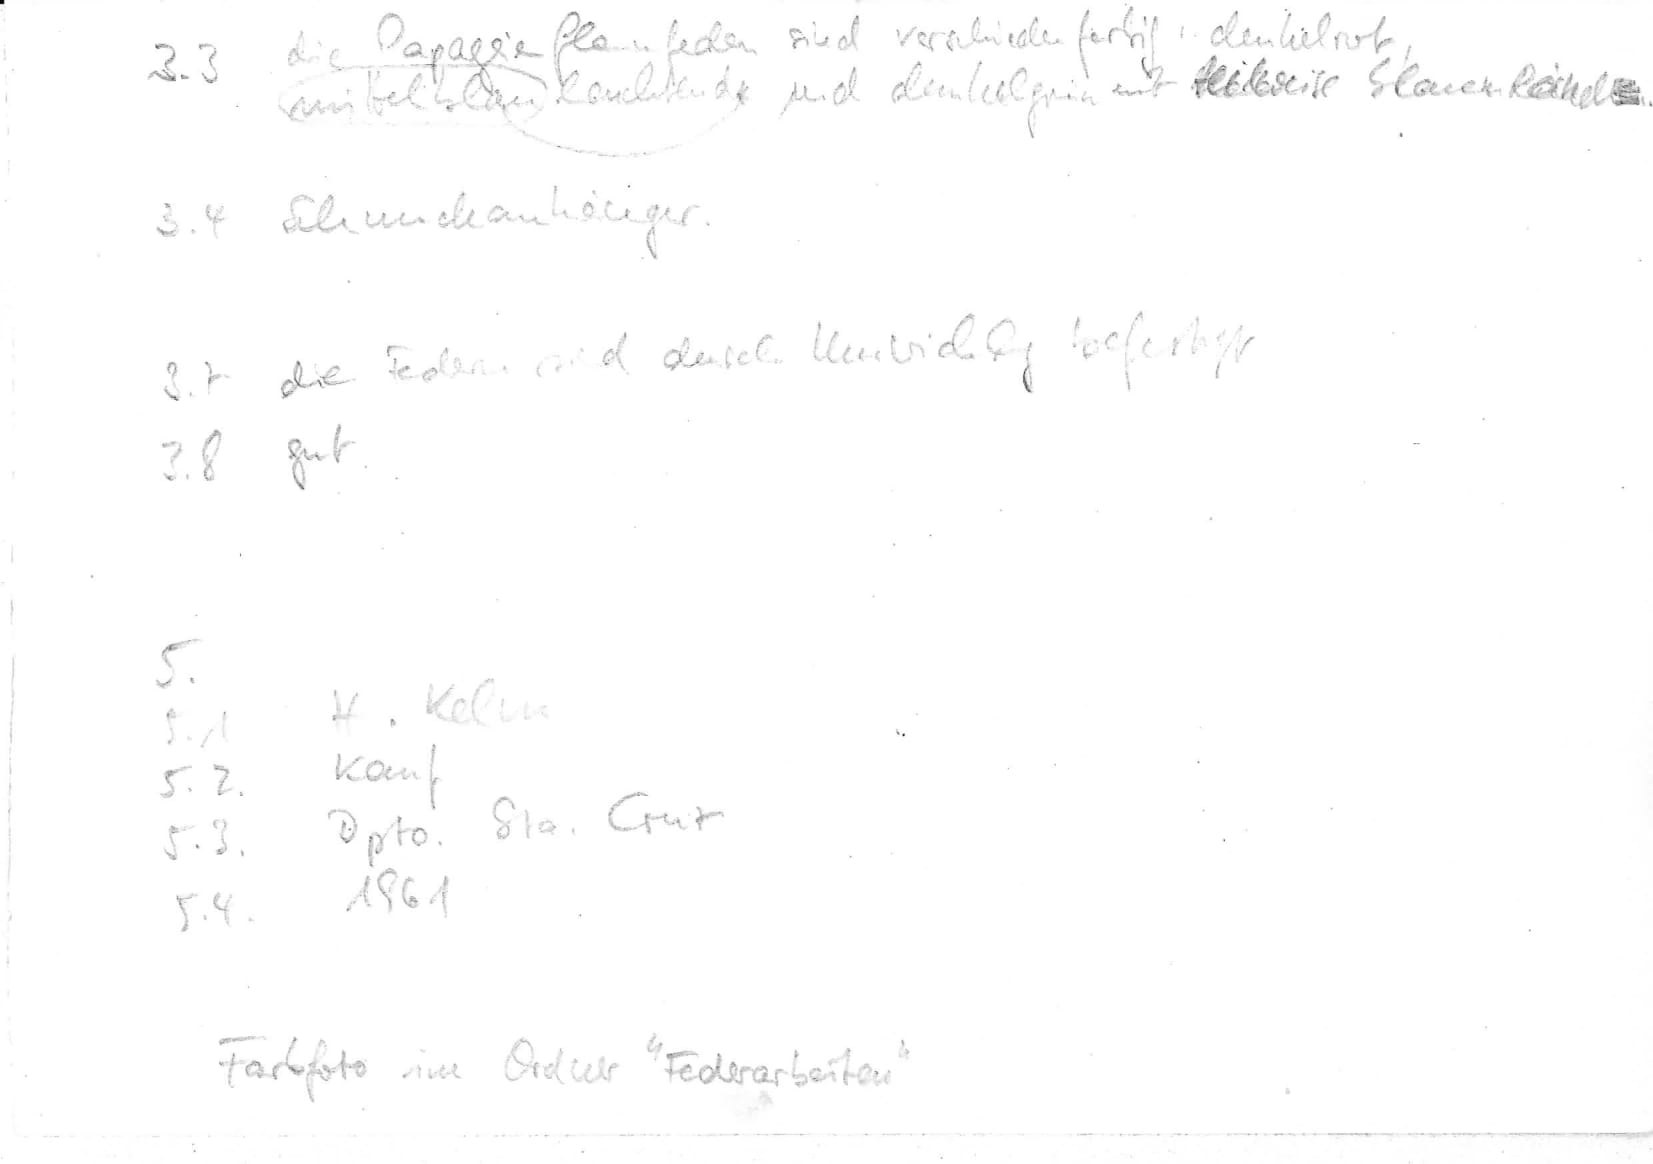 3.3 die Papageienflaumfedern sind verschiedenfarbig: dunkelrot,
mittelblau leuchtende und dunkelgrün mit teilweise blauen Rändern.
3.4 Schmuckanhänger.
3.7 die Federn sind durch Umwicklg befestigt
3.8 gut.
5.
5.1 H. Kelm
5.2. Kauf
5.3. Dpto. Sta. Cruz
5.4. 1961
Farbfoto im Ordner "Federarbeiten"